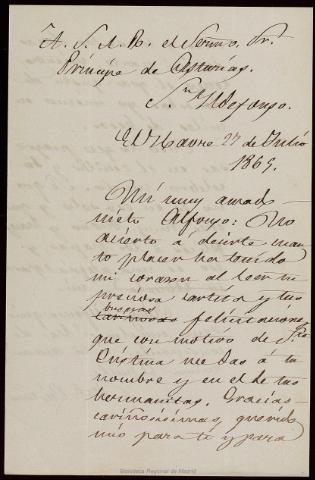 A. S. A. R. el Sermo. Sr.
Príncipe de Asturias.
Sn. Yldefonso.
El Havre 27 de Julio
1865.
Mi muy amado
nieto Alfonso: No
acierto a decirte cuan
to placer ha tenido
mi corazon al leer tu
preciosa cartita y tus
buenas
cariñosas felicitaciones
que con motivo de Sta.
Cristina me das á tu
nombre y en el de tus
hermanitas. Gracias
cariñosisimas, querido
mio para tí y para
Biblioteca Regional de Madrid